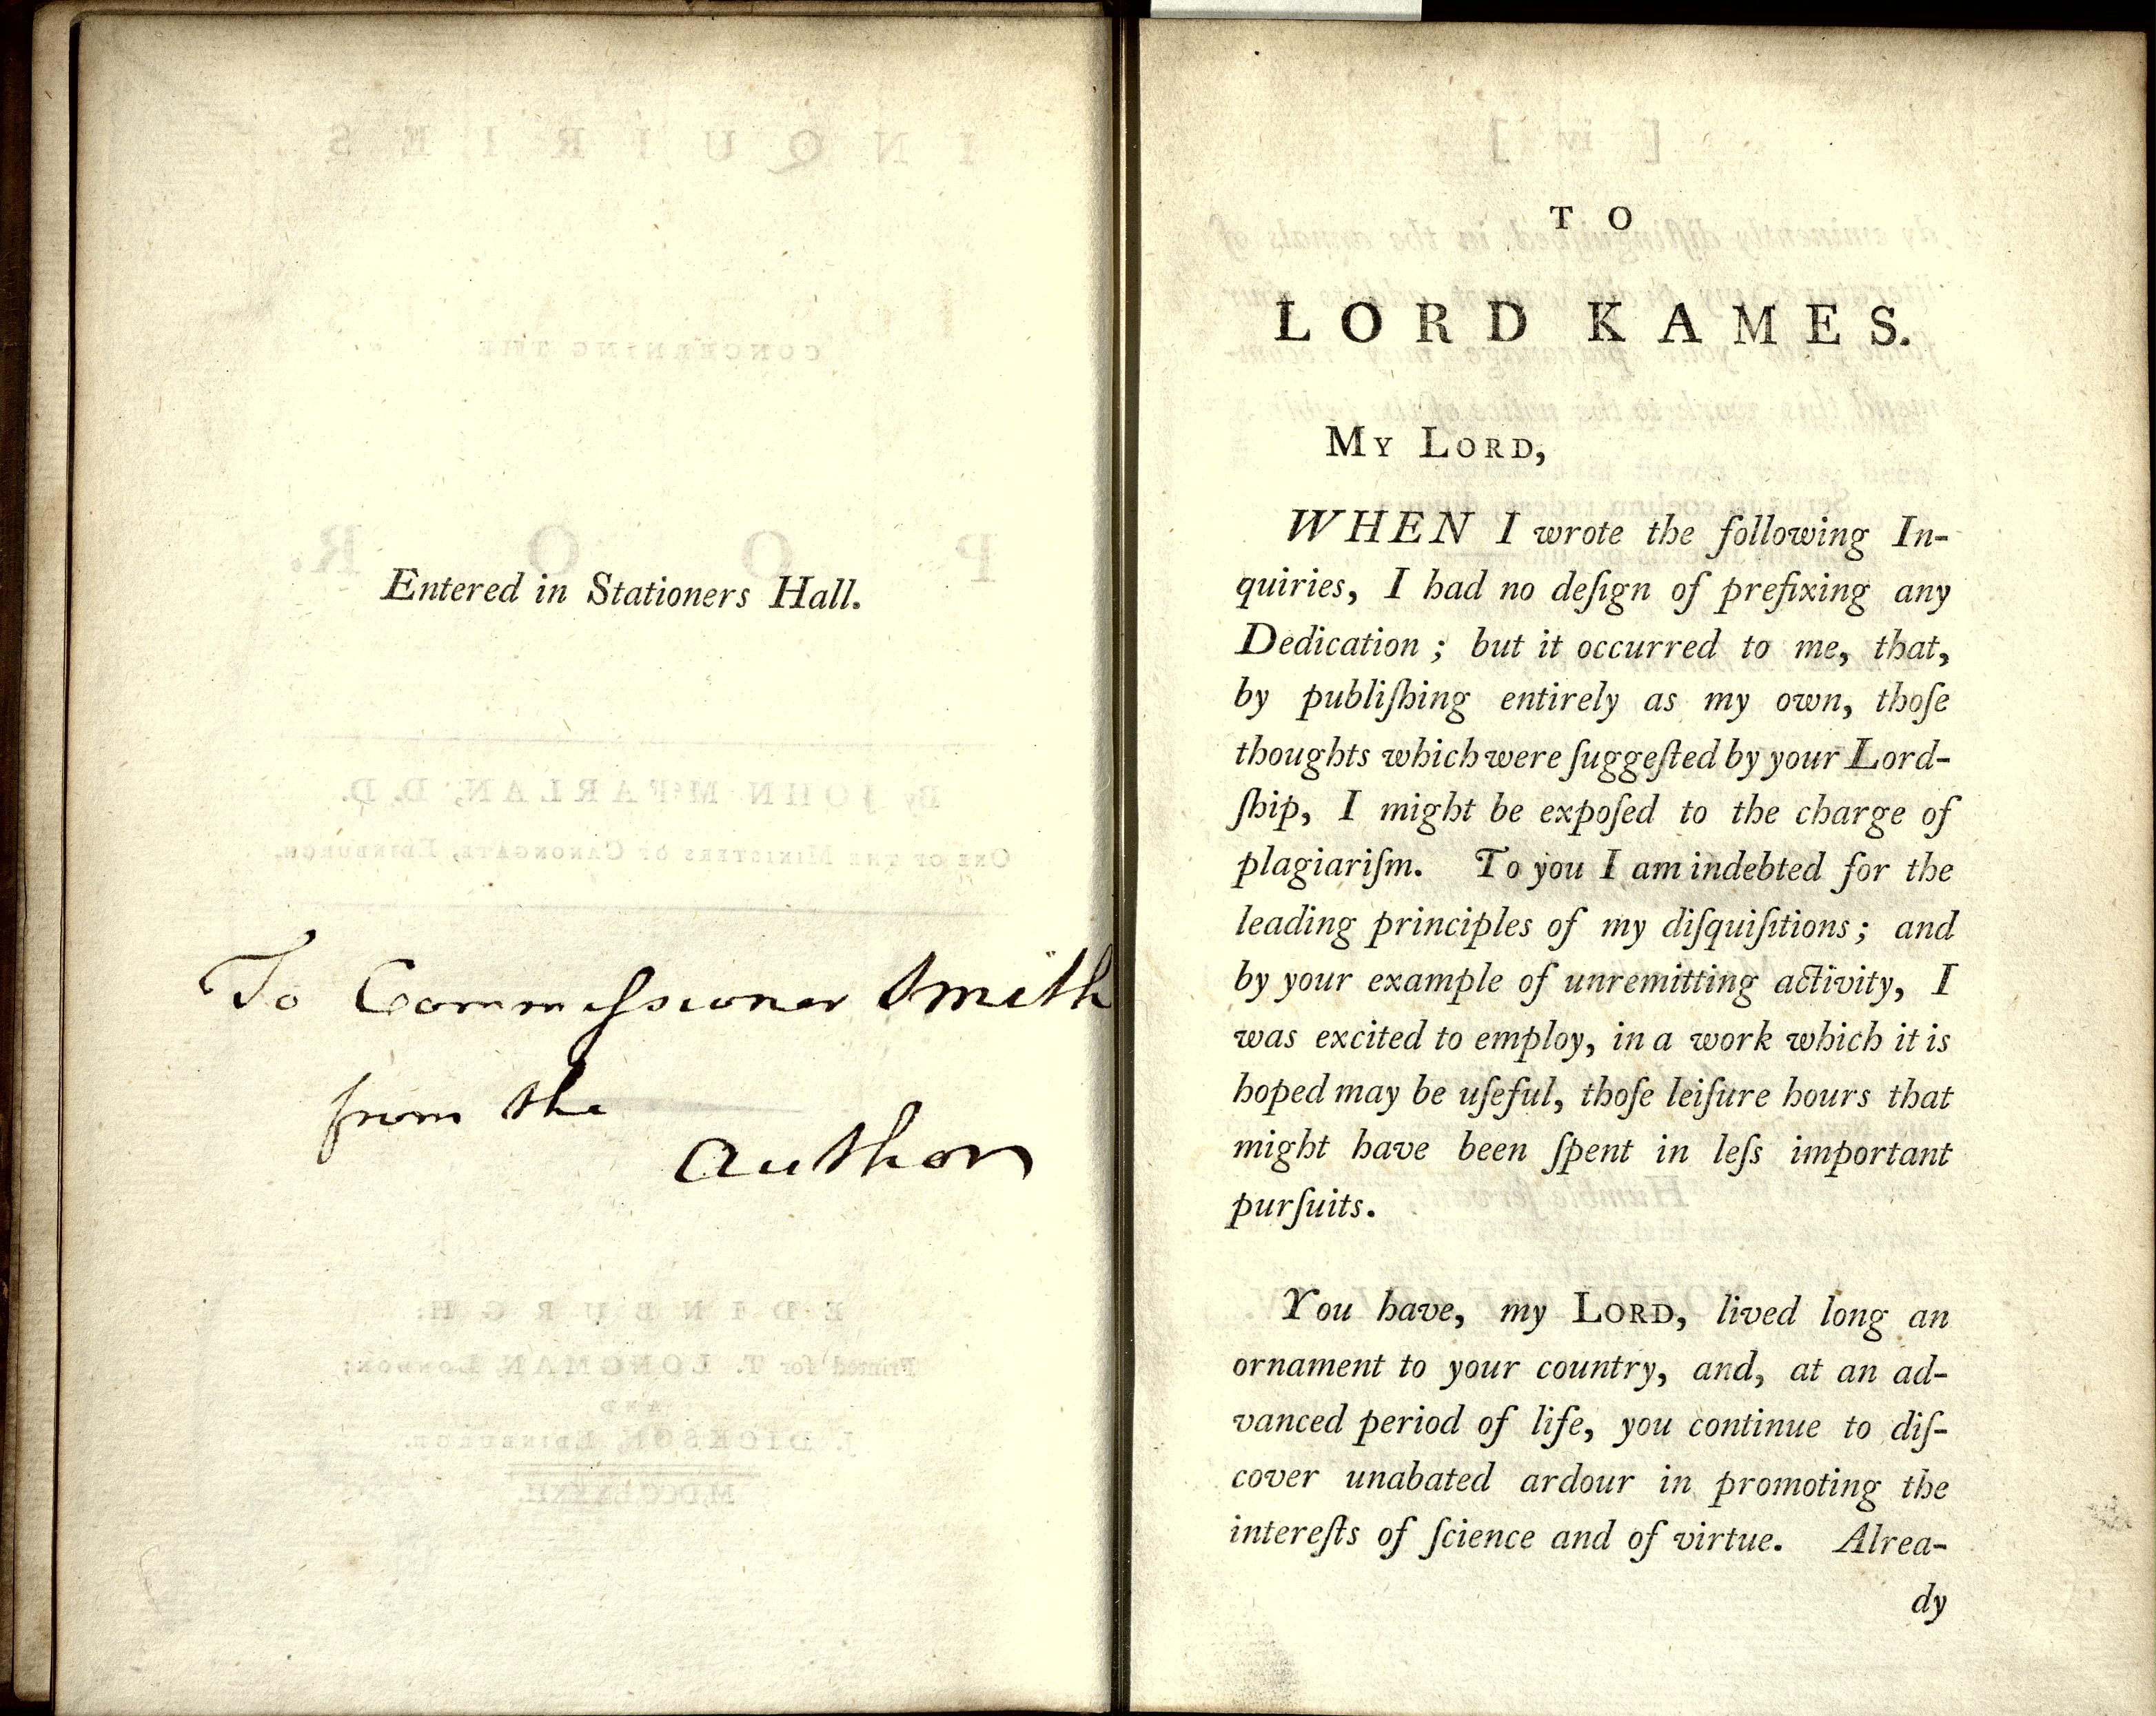 Entered in Stationers Hall.
To Commiſsioner Smith
from the
Author
TO
LORD KAMES.
MY LORD,
WHEN I wrote the following In-
quiries, I had no deſign of prefixing any
Dedication ; but it occurred to me, that,
by publiſhing entirely as my own, thoſe
thoughts which were ſuggeſted by your Lord-
ſhip, I might be expoſed to the charge of
plagiariſm. To you I am indebted for the
leading principles of my diſquiſitions ; and
by your example of unremitting activity, I
was excited to employ, in a work which it is
hoped may be uſeful, thoſe leiſure hours that
might have been ſpent in leſs important
purſuits.
You have, my LORD, lived long an
ornament to your country, and, at an ad-
vanced period of life, you continue to diſ-
cover unabated ardour in promoting the
intereſts of ſcience and of virtue. Alrea-
dy